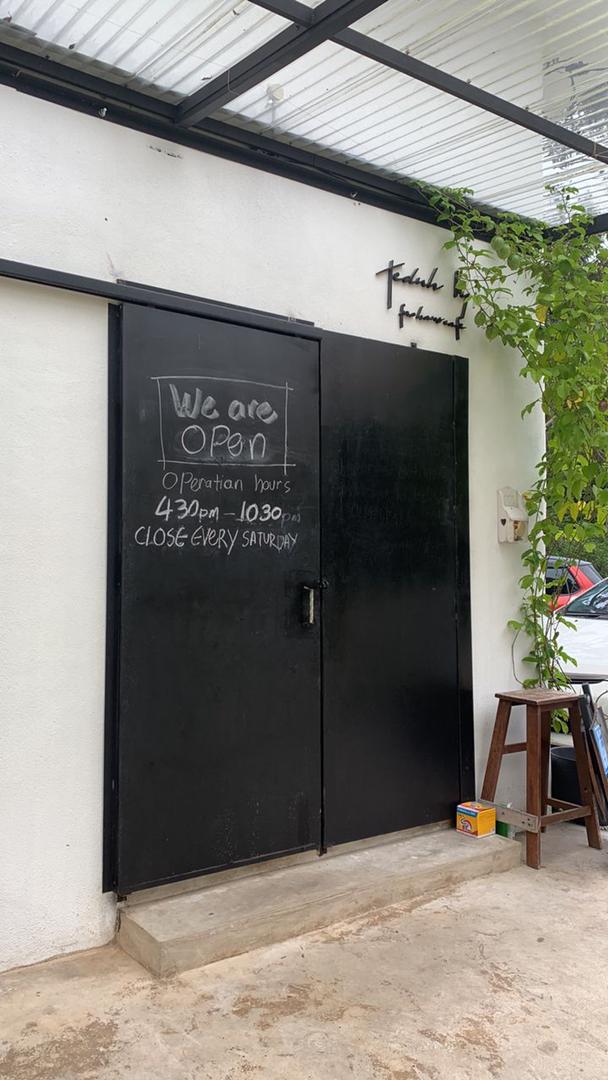 teduh
We are
OPen
OPeratian hours
430pm - 1030pm
CLOSE EVERY SATURDAY